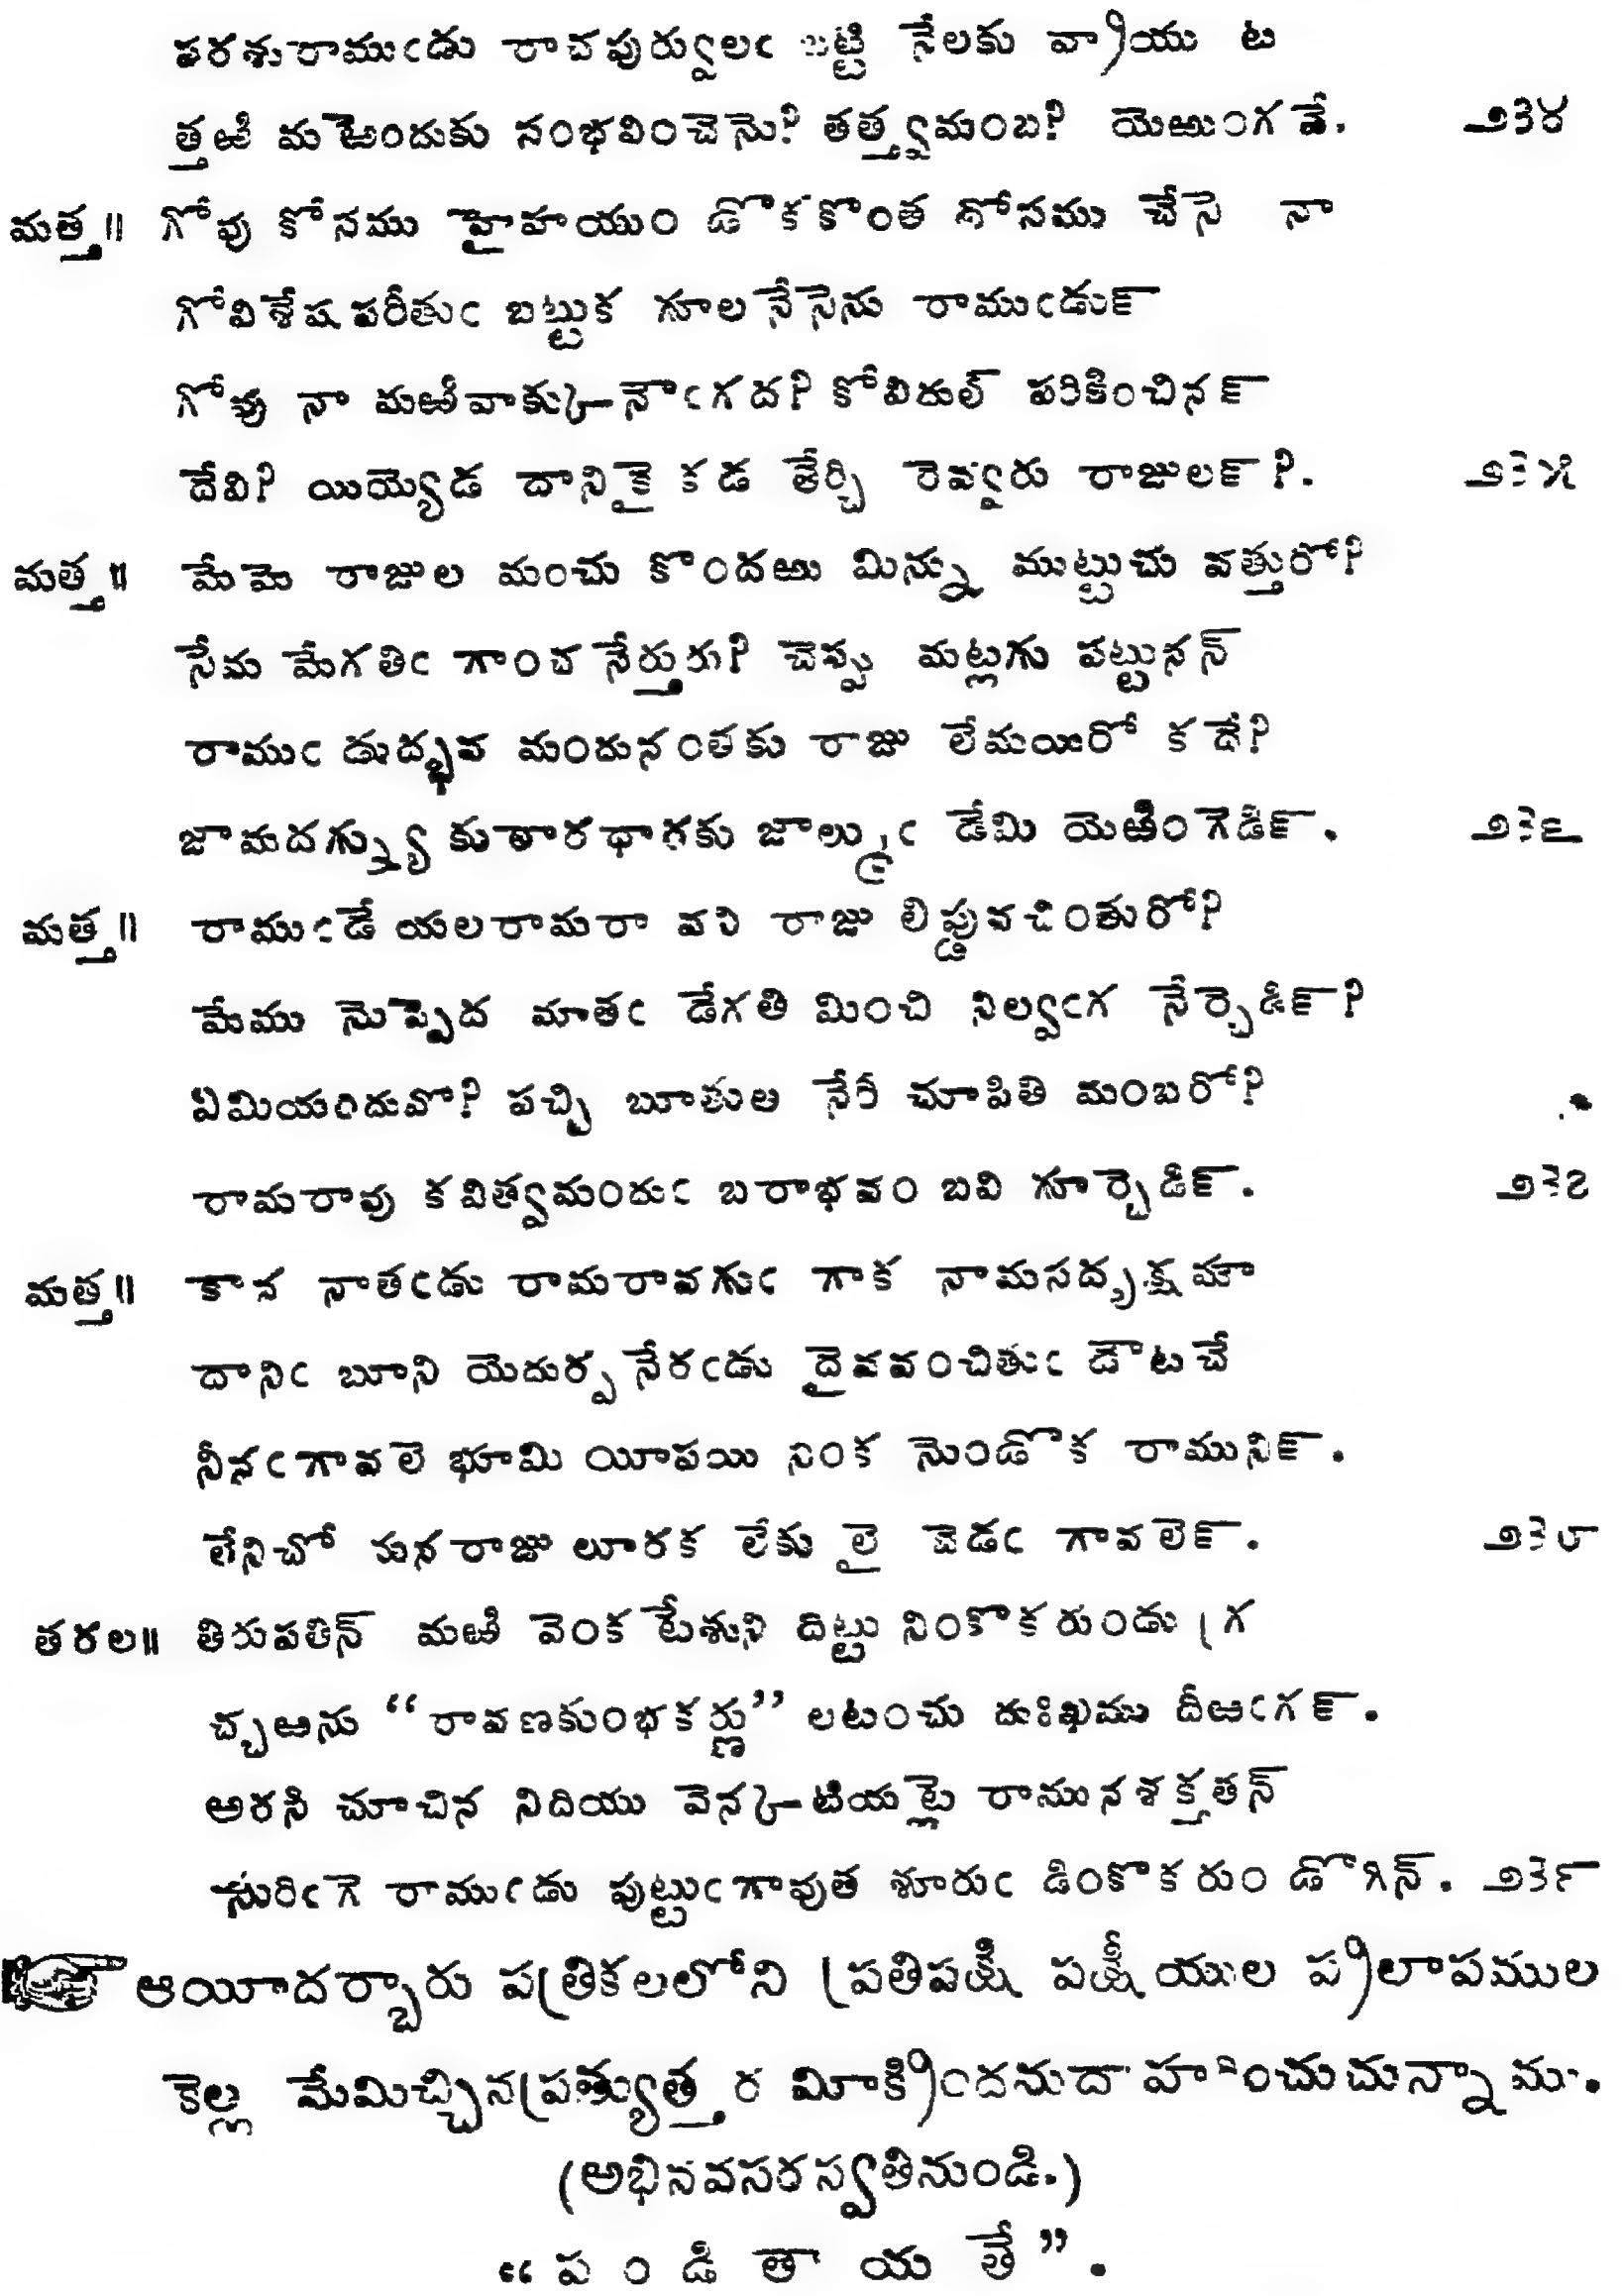 పరశురాముఁడు రాచపుర్వులఁ బట్టి నేలకు వ్రాయు ట
త్తఱి మఱెందుకు సంభవించెనె? తత్త్వమంబ? యెఱుంగవే. ౨౩౪
మత్త॥ గోవు కోసము హైహయుం డొకకొంత దోసము చేసె నా
గోవిశేషపరీతుఁ బట్టుక గూలనేసెను రాముఁడుక్
గోవు నా మఱివాక్కునౌఁగద? కోవిదుల్ పరికించినక్
దేవి? యియ్యెడ దానికై కడతేర్చి రెవ్వారు రాజులక్?. ౨౩౫
మత్త॥ మేమె రాజుల మంచు కొందఱు మిన్ను ముట్టుచు వత్తురో?
సేమ మేగతిఁ గాంచనేర్తురు? చెప్పు మట్లగు పట్టునన్
రాముఁ డుద్భవ మందునంతకు రాజు లేమయిరో కదే?
జామదగ్న్యు కుఠారధారకు జాల్ముఁ డేమి యెఱింగెడిక్. ౨౩౬
మత్త॥ రాముఁడే యలరామరా వని రాజు లిప్డువచింతురో?
మేము నొప్పెద మాతఁ డేగతి మించి నిల్వఁగ నేర్చెడిక్?
ఏమియందువో? పచ్చి బూతుల నేరి చూపితి మంబరో?
రామరావు కవిత్వమందుఁ బరాభవం బవి గూర్చెడిక్. ౨౩౭
మత్త॥ కాన నాతఁడు రామరావగుఁ గాక నామసదృక్షమా
దానిఁ బూని యెదుర్పనేరఁడు దైవవంచితుఁ డౌటచే
నీనఁగావలె భూమి యీపయి నింక నొండొక రామునిక్.
లేనిచో మనరాజు లూరక లేకు లై చెడఁ గావలెక్. ౨౩౮
తరల॥ తిరుపతిన్ మఱి వెంకటేశుని దిట్టు నింకొకరుండు గ్ర
చ్చఱను “రావణకుంభకర్ణు” లటంచు దుఃఖము దీఱఁగక్.
అరసి చూచిన నిదియు వెనక్కటియట్లె రామునశక్తతన్
సురిఁగె రాముఁడు పుట్టుఁగావుత శూరుఁ డింకొకరుం డొగిన్. ౨౩౯
☞ ఆయీదర్బారు పత్రికలలోని ప్రతిపక్షి పక్షీయుల ప్రలాపముల
కెల్ల మేమిచ్చినప్రత్యుత్తర మీక్రిందనుదాహరించుచున్నాము.
(అభినవసరస్వతినుండి.)
“పండితాయతే”.